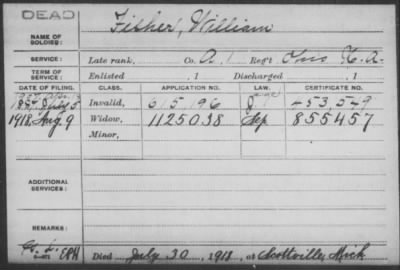 DEAD
NAME OF SOLDIER:
Fisher, William
SERVICE:
Late rank, Co. A, 1 Reg't Ohio H.A.
TERM OF SERVICE:
Enlisted , 1 Discharged , 1
DATE OF FILING. CLASS. APPLICATION NO. CERTIFICATE NO.
1887 July 5 Invalid, 615,196 453,549
1918, Aug. 9 Widow, 1125038 Sep 855457
Minor,
ADDITIONAL SERVICES:
REMARKS:
Died July 30, 1918, at Scottville, Mich